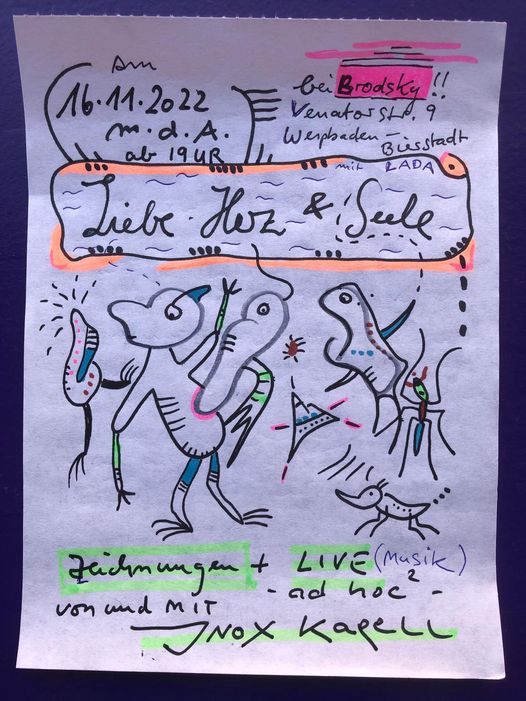 Am
16.11.2022
m.d.A.
ab 19 UR
bei Brodsky!!
Venatorstr. 9
Wespbaden-
Bierstadt
mit LADA
Liebe Herz & Seele
Zeichnungen + LIVE (Musik)
- ad hoc² -
von und MIT
INOX Kapell